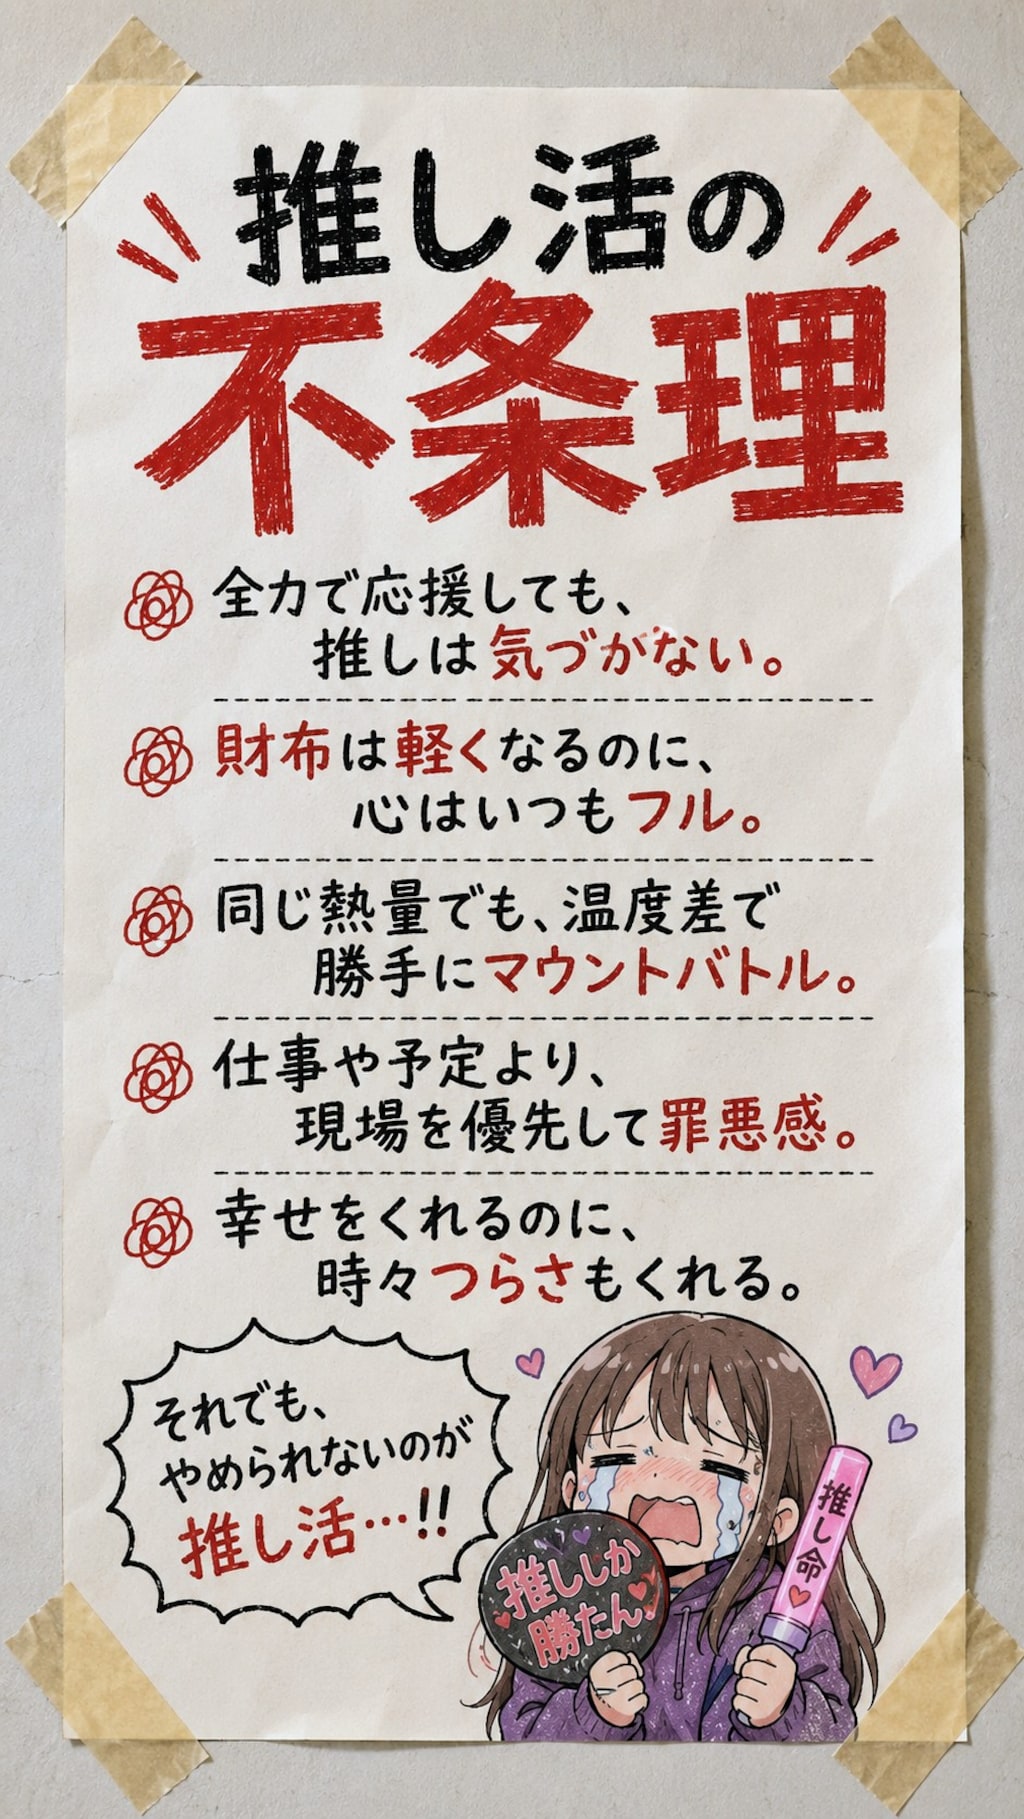 推し活の
不条理
全力で応援しても、
推しは気づがない。
財布は軽くなるのに、
心はいつもフル。
同じ熱量でも、温度差で
勝手にマウントバトル。
仕事や予定より、
現場を優先して罪悪感。
幸せをくれるのに、
時々つらさもくれる。
それでも、
やめられないのが
推し活…!!
推ししか
勝たん!
推し命